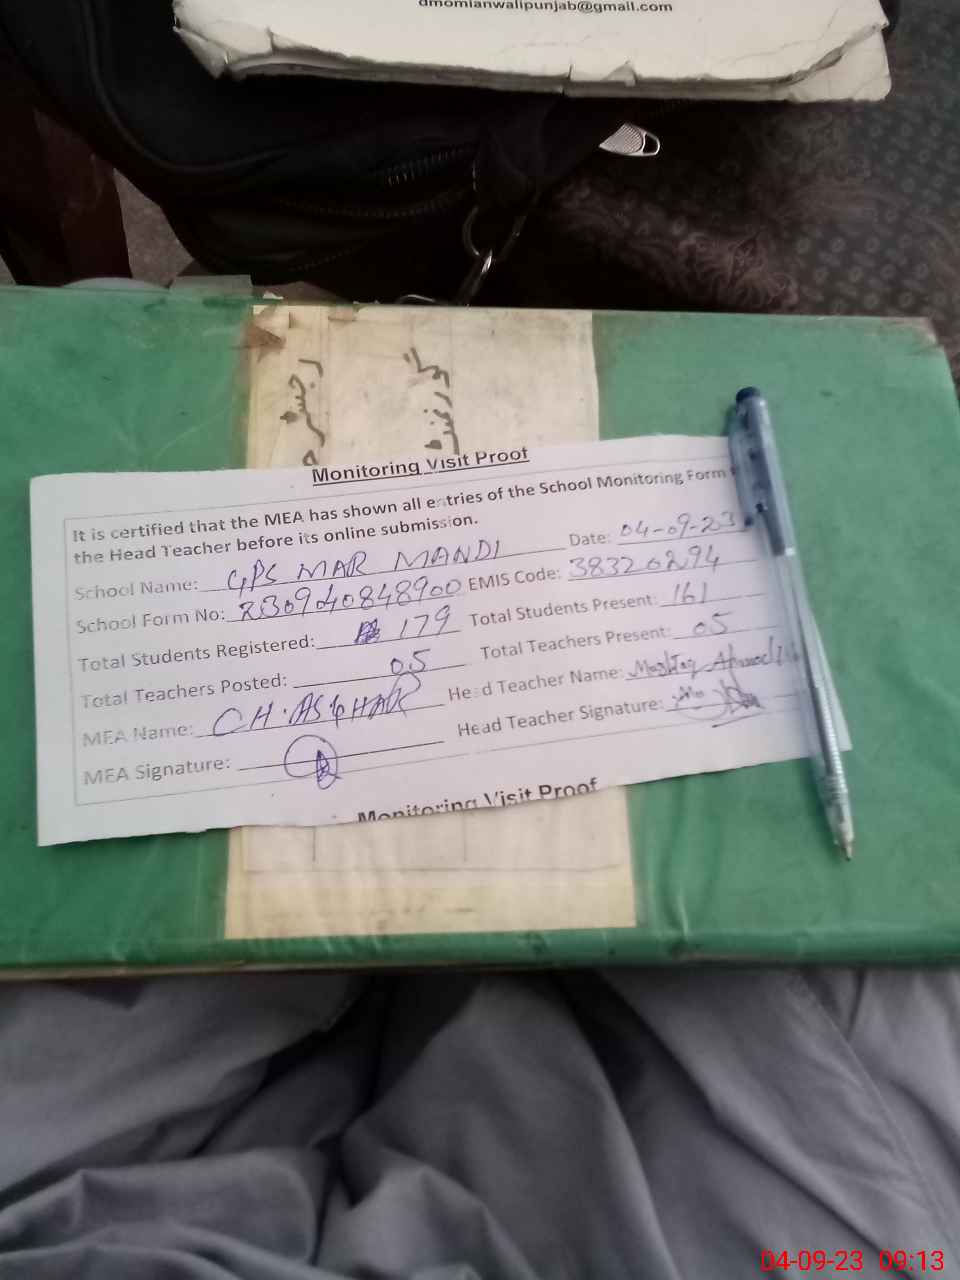 dmomianwalipunjab@gmail.com
رجسٹر
گورنمنٹ
Monitoring Visit Proof
It is certified that the MEA has shown all entries of the School Monitoring Form
the Head Teacher before its online submission.
School Name: GPS MAR MANDI Date: 04-09-23
School Form No: R30940848900 EMIS Code: 38320294
Total Students Registered: 179 Total Students Present: 161
Total Teachers Posted: 05 Total Teachers Present: 05
MEA Name: CH. ASGHAR Head Teacher Name: Mushtaq Ahmed
MEA Signature: Head Teacher Signature:
Monitoring Visit Proof
04-09-23 09:13